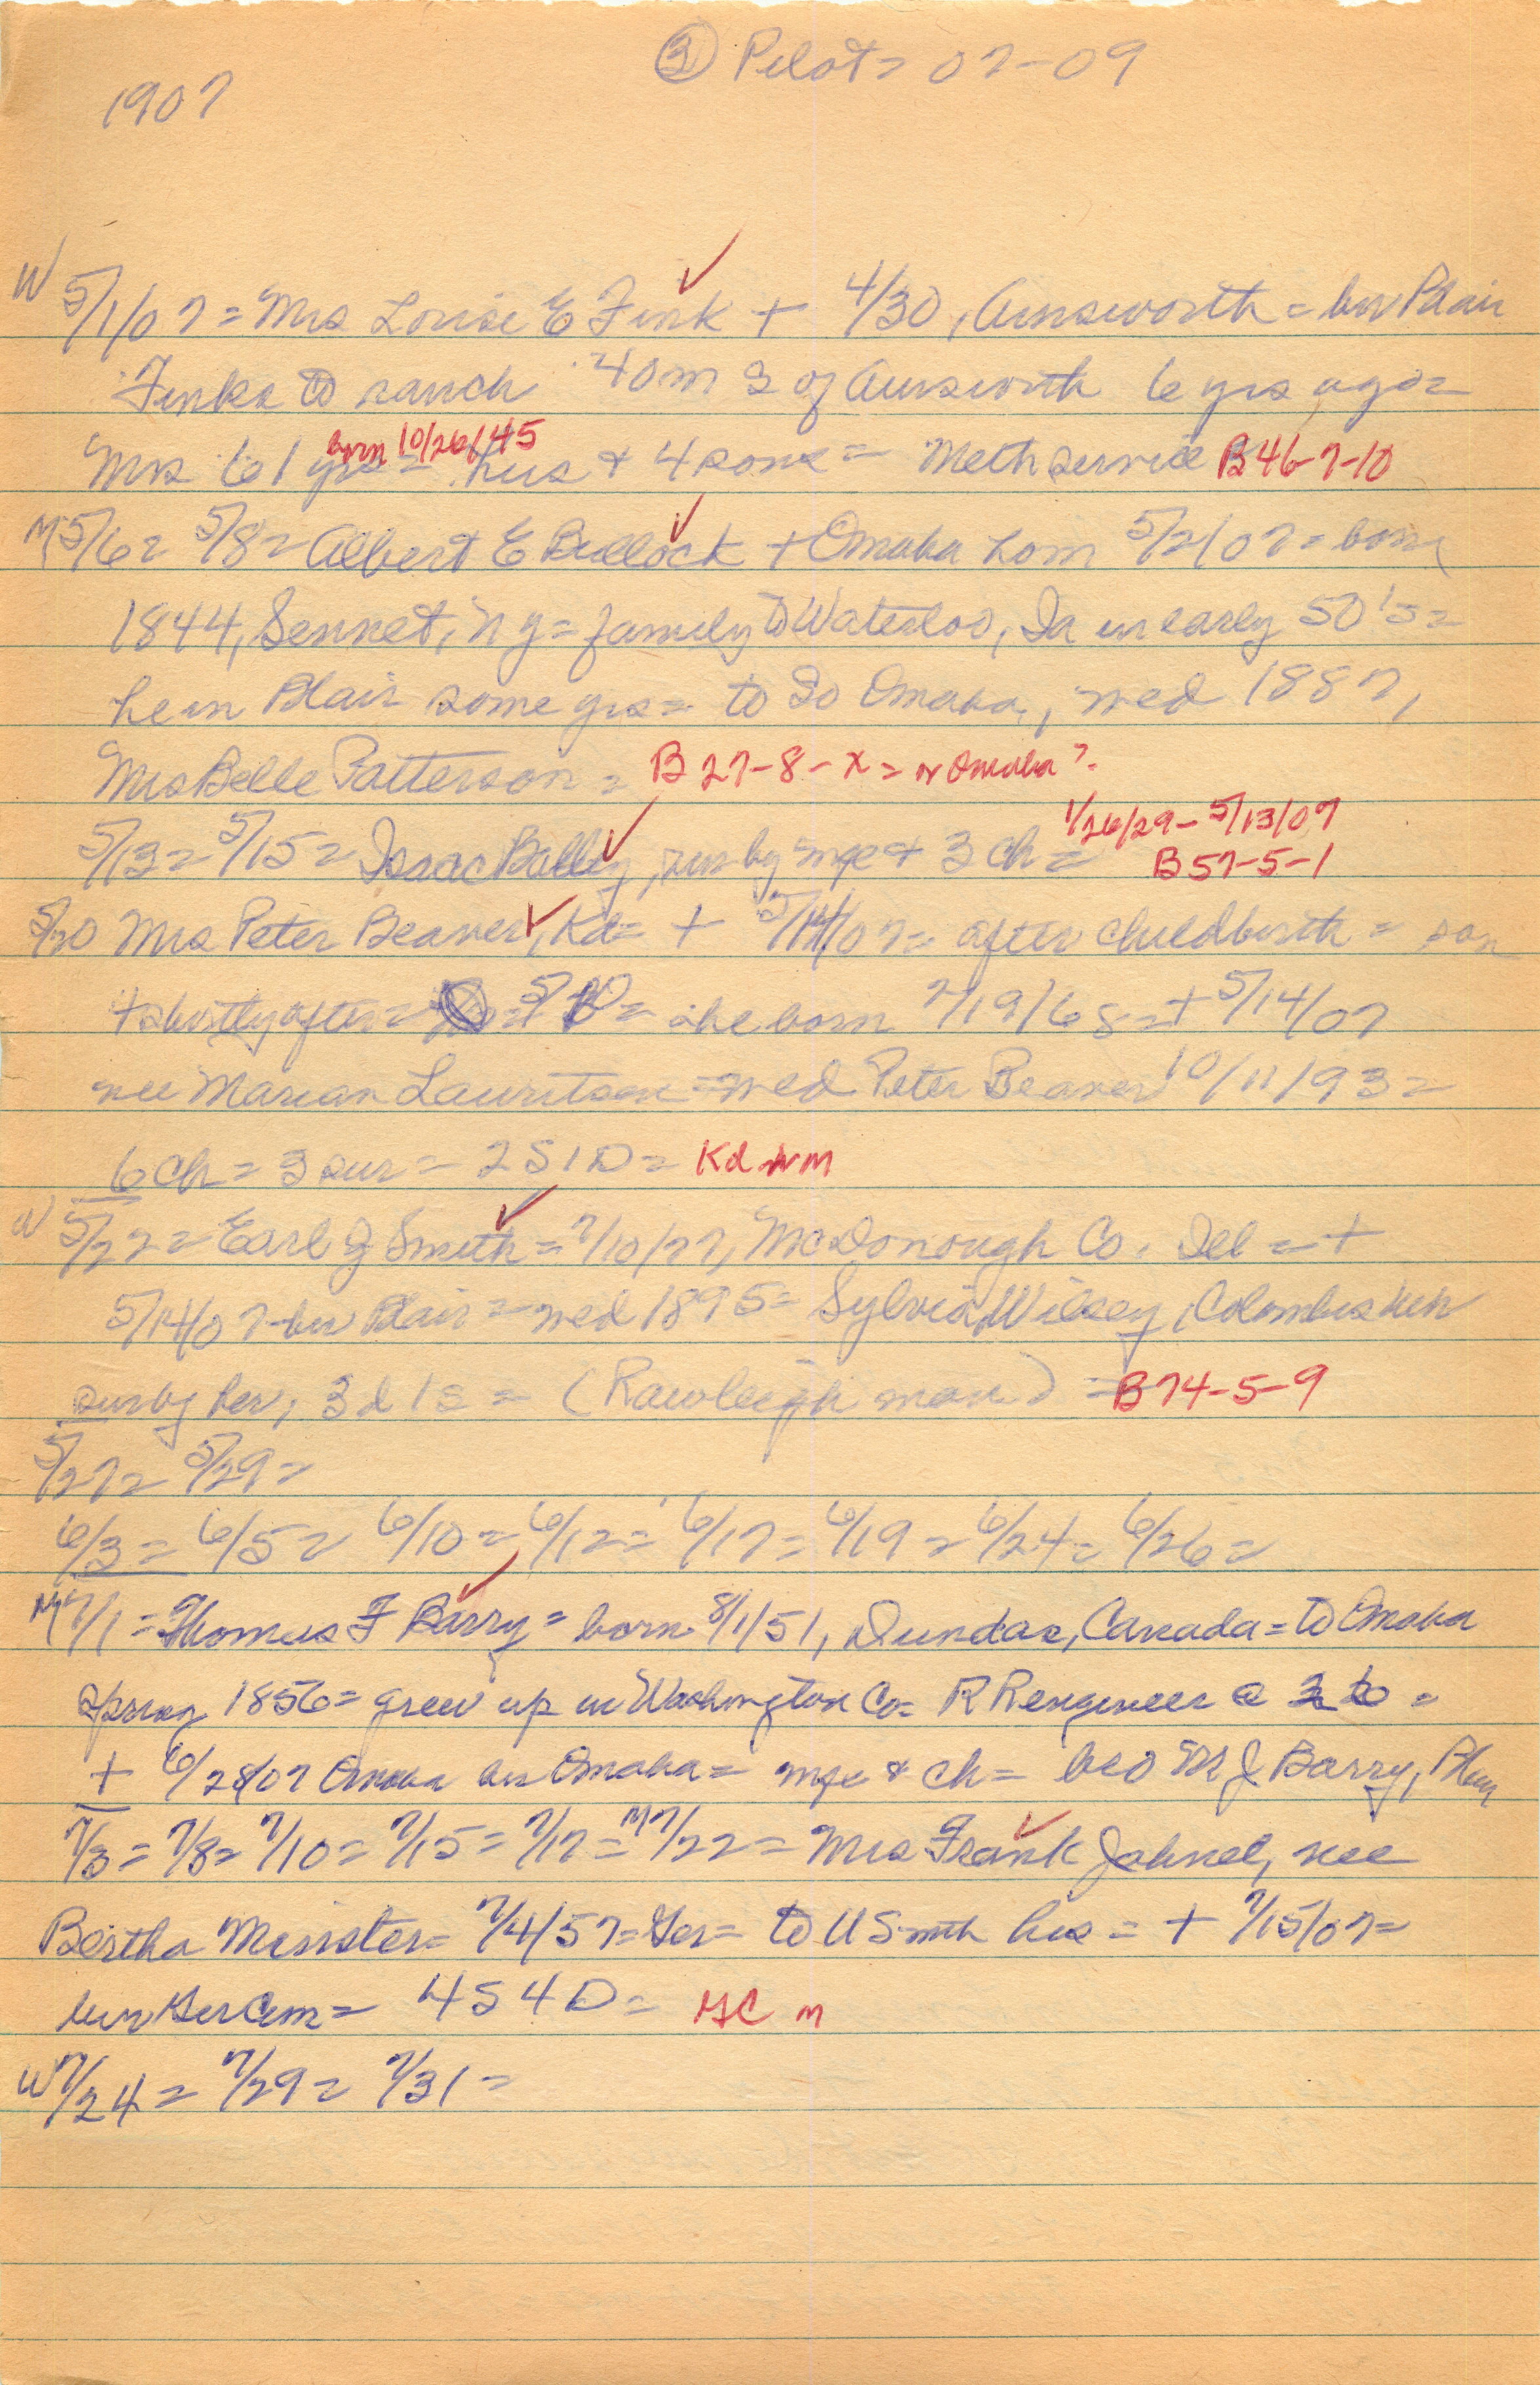 ③ Pilot = 07-09
1907
W 5/1/07 = Mrs Louise E Fink + 4/30, Ainsworth = bur Blair
Finks to ranch 40 m S of Ainsworth 6 yrs ago =
born 10/26/45
Mrs 61 yrs = hus & 4 sons = Meth service B46-7-10
M 5/6 = 5/8 = Albert E Bullock + Omaha hom 5/2/07 = born
1844, Sennet, NY = family to Waterloo, Ia in early 50's =
he in Blair some yrs = to So Omaha, wed 1887,
Mrs Belle Patterson = B 27-8-x = or Omaha?
1/26/29 - 5/13/07
5/13 = 5/15 = Isaac Bailey, sur by mge & 3 ch = B57-5-1
5/20 Mrs Peter Beaver, Kd = + 5/14/07 = after childbirth = son
+ shortly after = 5/ = she born 7/19/68 = + 5/14/07
nee Marian Lauritsen = wed Peter Beaver 10/11/93 =
6 ch = 3 sur = 2 S 1 D = Kd nm
W 5/22 = Earl J Smith = 7/10/77, McDonough Co. Ill = +
5/14/07 bur Blair = wed 1895 = Sylvia Wilsey, Colombus Neb
sur by her, 3 d 1 s = (Rawleigh man) = B74-5-9
5/27 = 5/29 =
6/3 = 6/5 = 6/10 = 6/12 = 6/17 = 6/19 = 6/24 = 6/26 =
M 7/1 = Thomas F Barry = born 8/1/51, Dundas, Canada = to Omaha
spring 1856 = grew up in Washington Co = RR engineer @
+ 6/28/07 Omaha bur Omaha = mge & ch = bro M J Barry, Blair
7/3 = 7/8 = 7/10 = 7/15 = 7/17 = M 7/22 = Mrs Frank Jahnel, nee
Bertha Menister = 7/4/57 = Ger = to US with hus = + 7/15/07 =
bur Ger Cem = 4 S 4 D = GC n
W 7/24 = 7/29 = 7/31 =